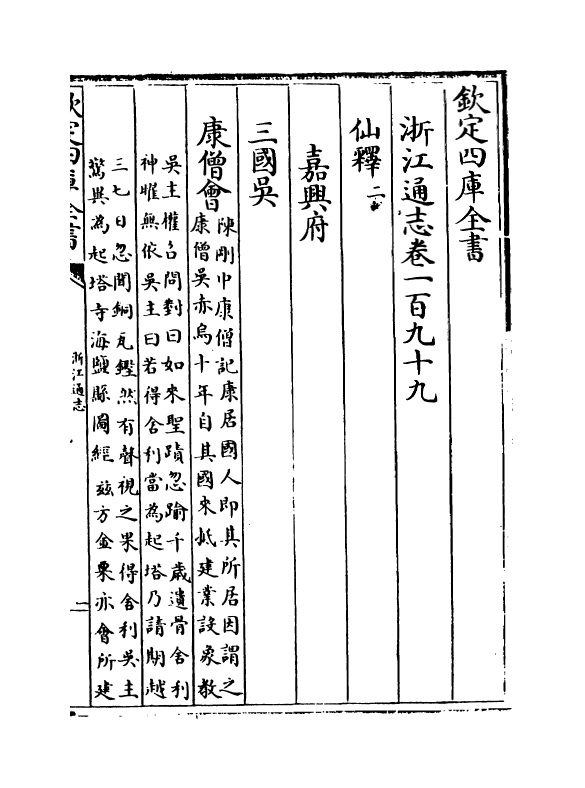 欽定四庫全書
浙江通志卷一百九十九
仙釋二
嘉興府
三國吳
康僧會
陳剛中康僧記康居國人即其所居因謂之
康僧吳赤烏十年自其國來抵建業設象教
吳主權召問對曰如來聖蹟忽踰千歲遺骨舍利
神曜無依吳主曰若得舍利當為起塔乃請期越
三七日忽聞銅瓦鏗然有聲視之果得舍利吳主
驚異為起塔寺海鹽縣圖經茲方金粟亦會所建
欽定四庫全書
浙江通志
一